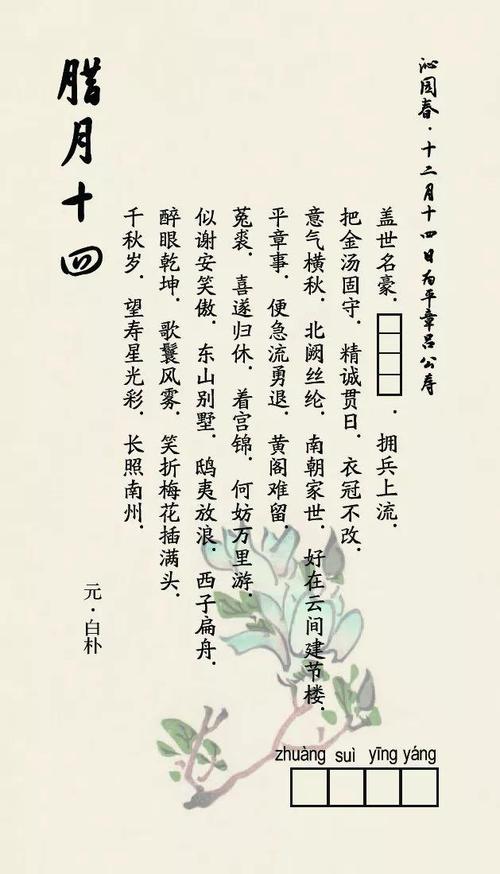 沁园春·十二月十四日为平章吕公寿
盖世名豪．．拥兵上流．
把金汤固守．精诚贯日．衣冠不改．
意气横秋．北阙丝纶．南朝家世．好在云间建节楼．
平章事．便急流勇退．黄阁难留．
菟裘．喜遂归休．着宫锦．何妨万里游．
似谢安笑傲．东山别墅．鸱夷放浪．西子扁舟．
醉眼乾坤．歌鬟风雾．笑折梅花插满头．
千秋岁．望寿星光彩．长照南州．
元·白朴
腊月十四
zhuàng suì yīng yáng